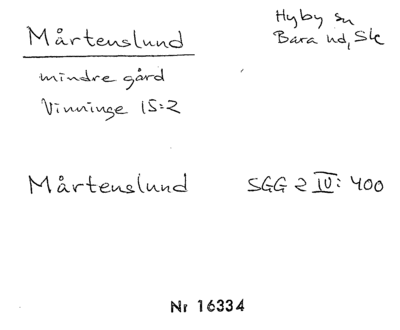 Mårtenslund
Hyby sn
Bara hd, Sk
mindre gård
Vinninge 15:2
Mårtenslund
SGG 2 IV: 400
Nr 16334